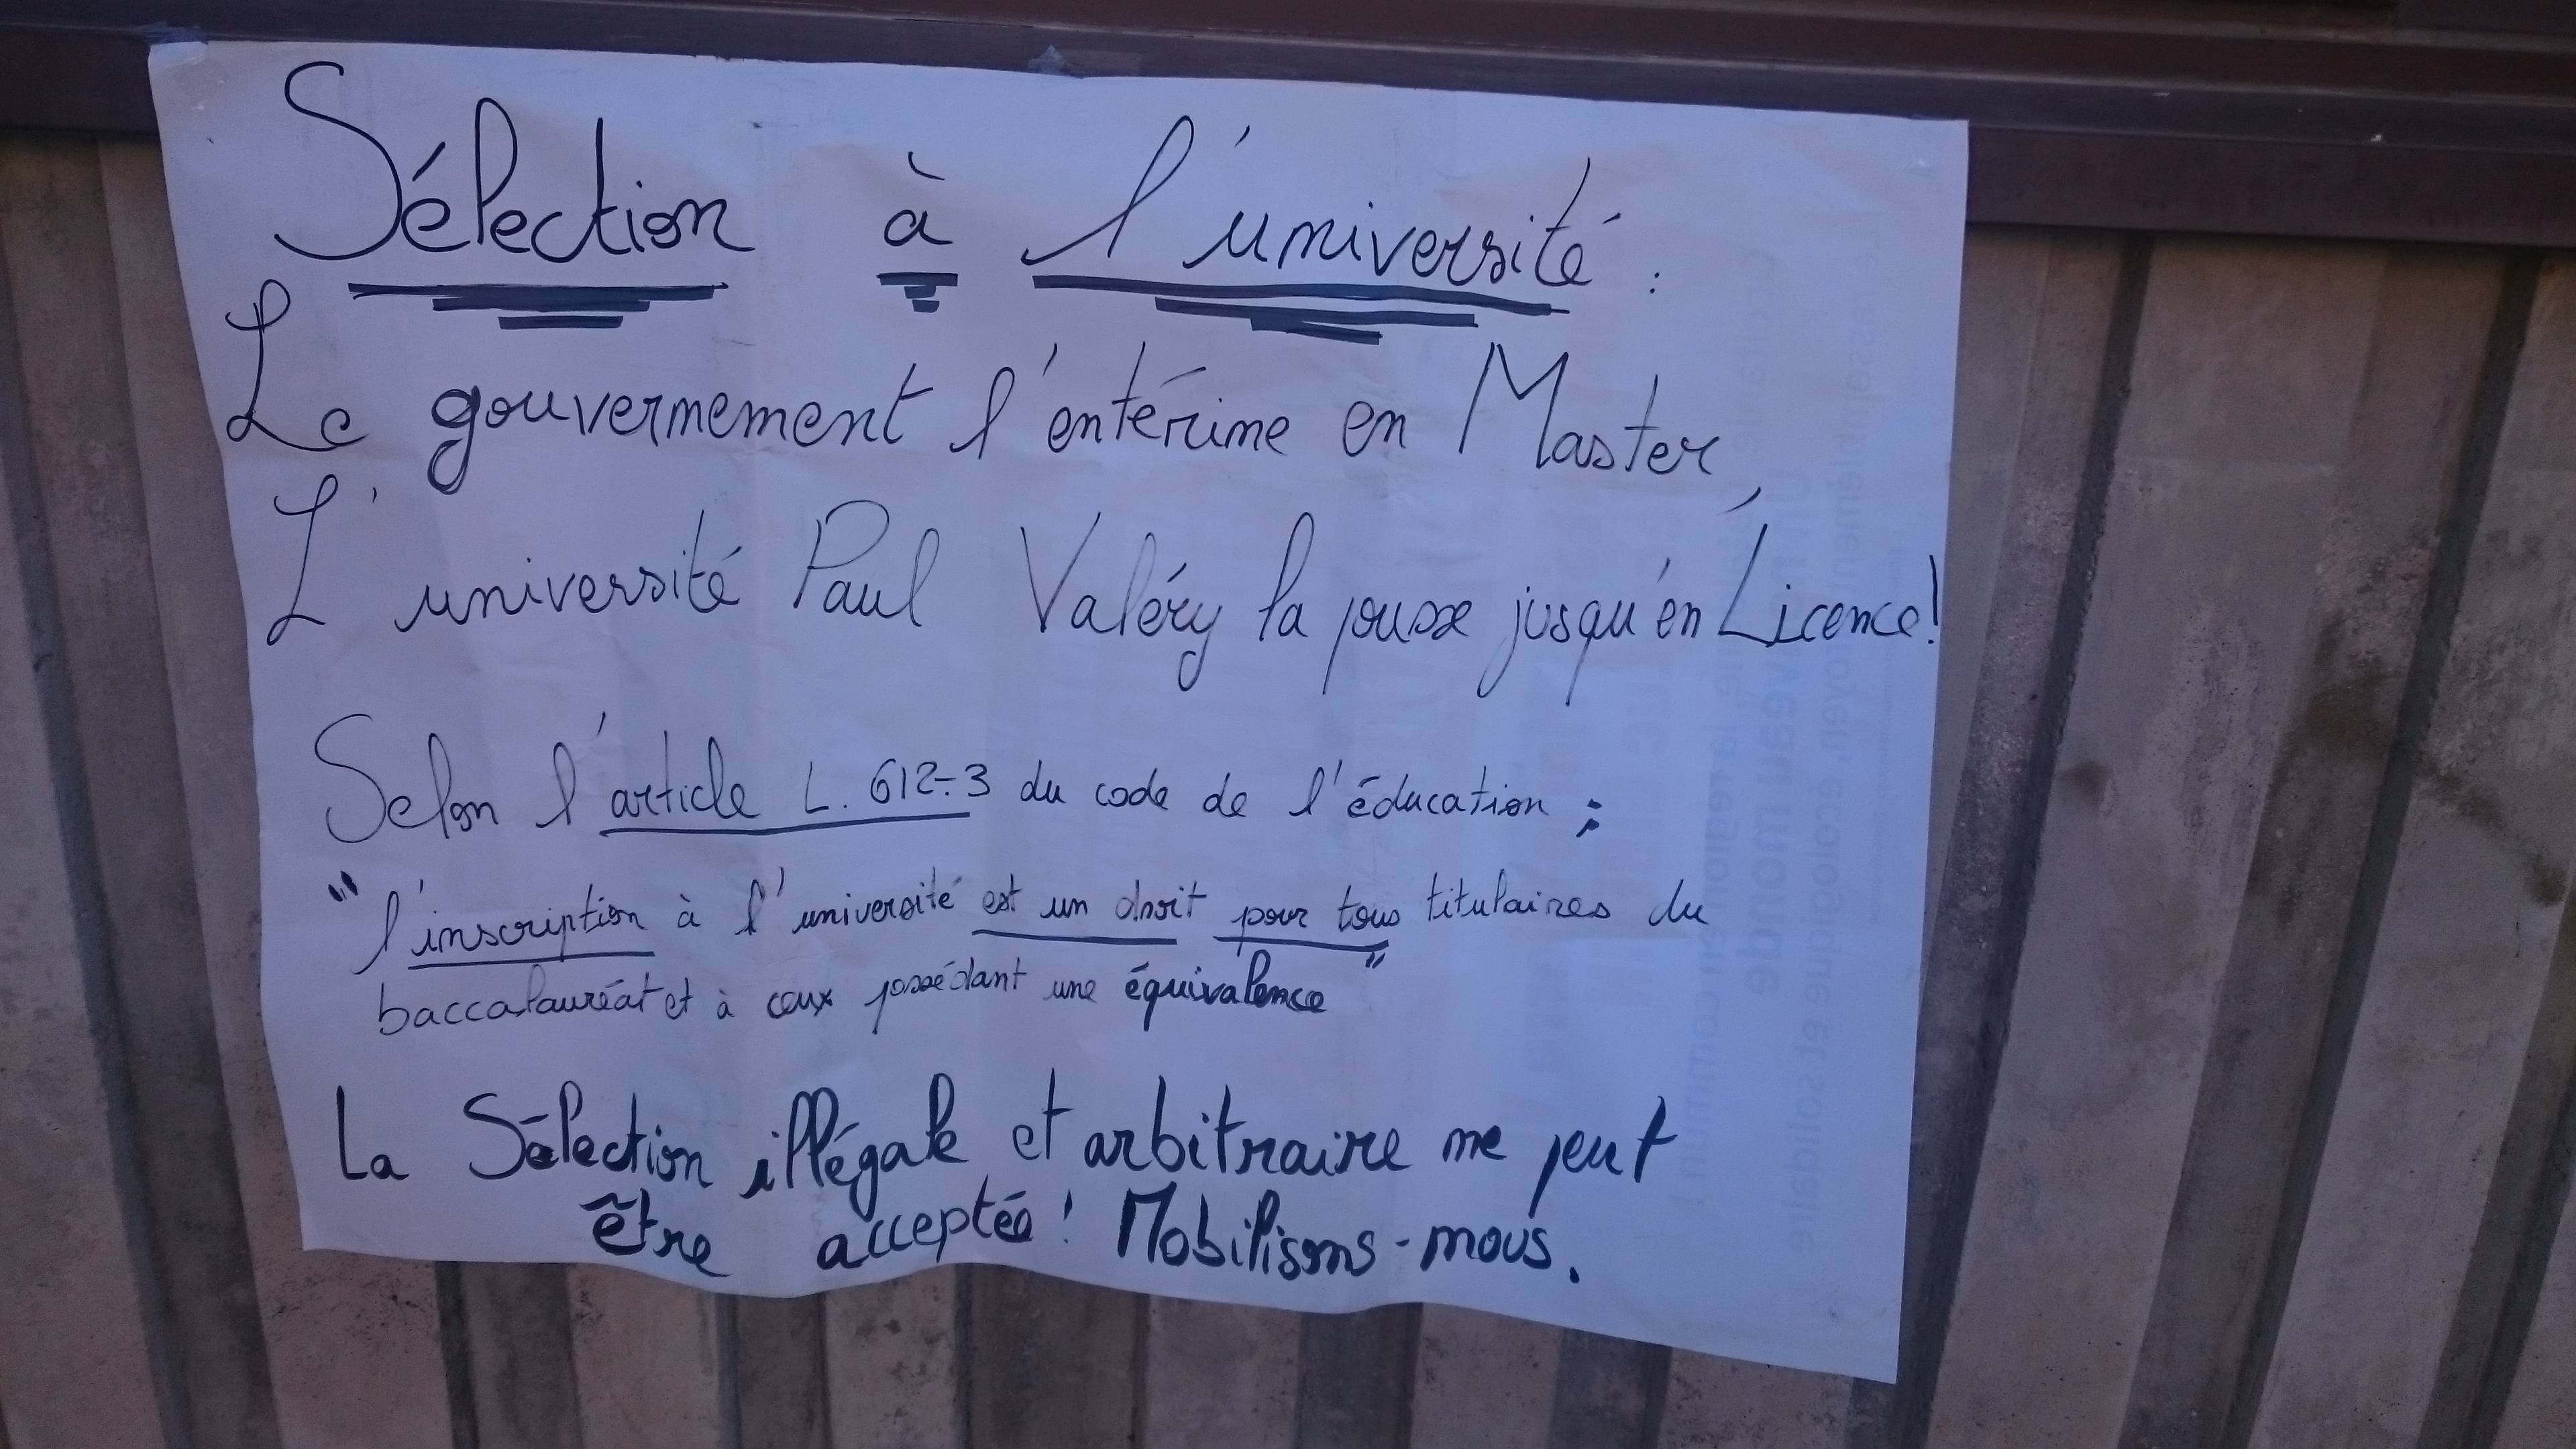 Sélection à l'université :
Le gouvernement l'entérine en Master,
L'université Paul Valéry la pousse jusqu'en Licence!
Selon l'article L. 612-3 du code de l'éducation ;
"l'inscription à l'université est un droit pour tous titulaires du
baccalauréat et à ceux possédant une équivalence"
La Sélection illégale et arbitraire ne peut
être acceptée ! Mobilisons-nous.